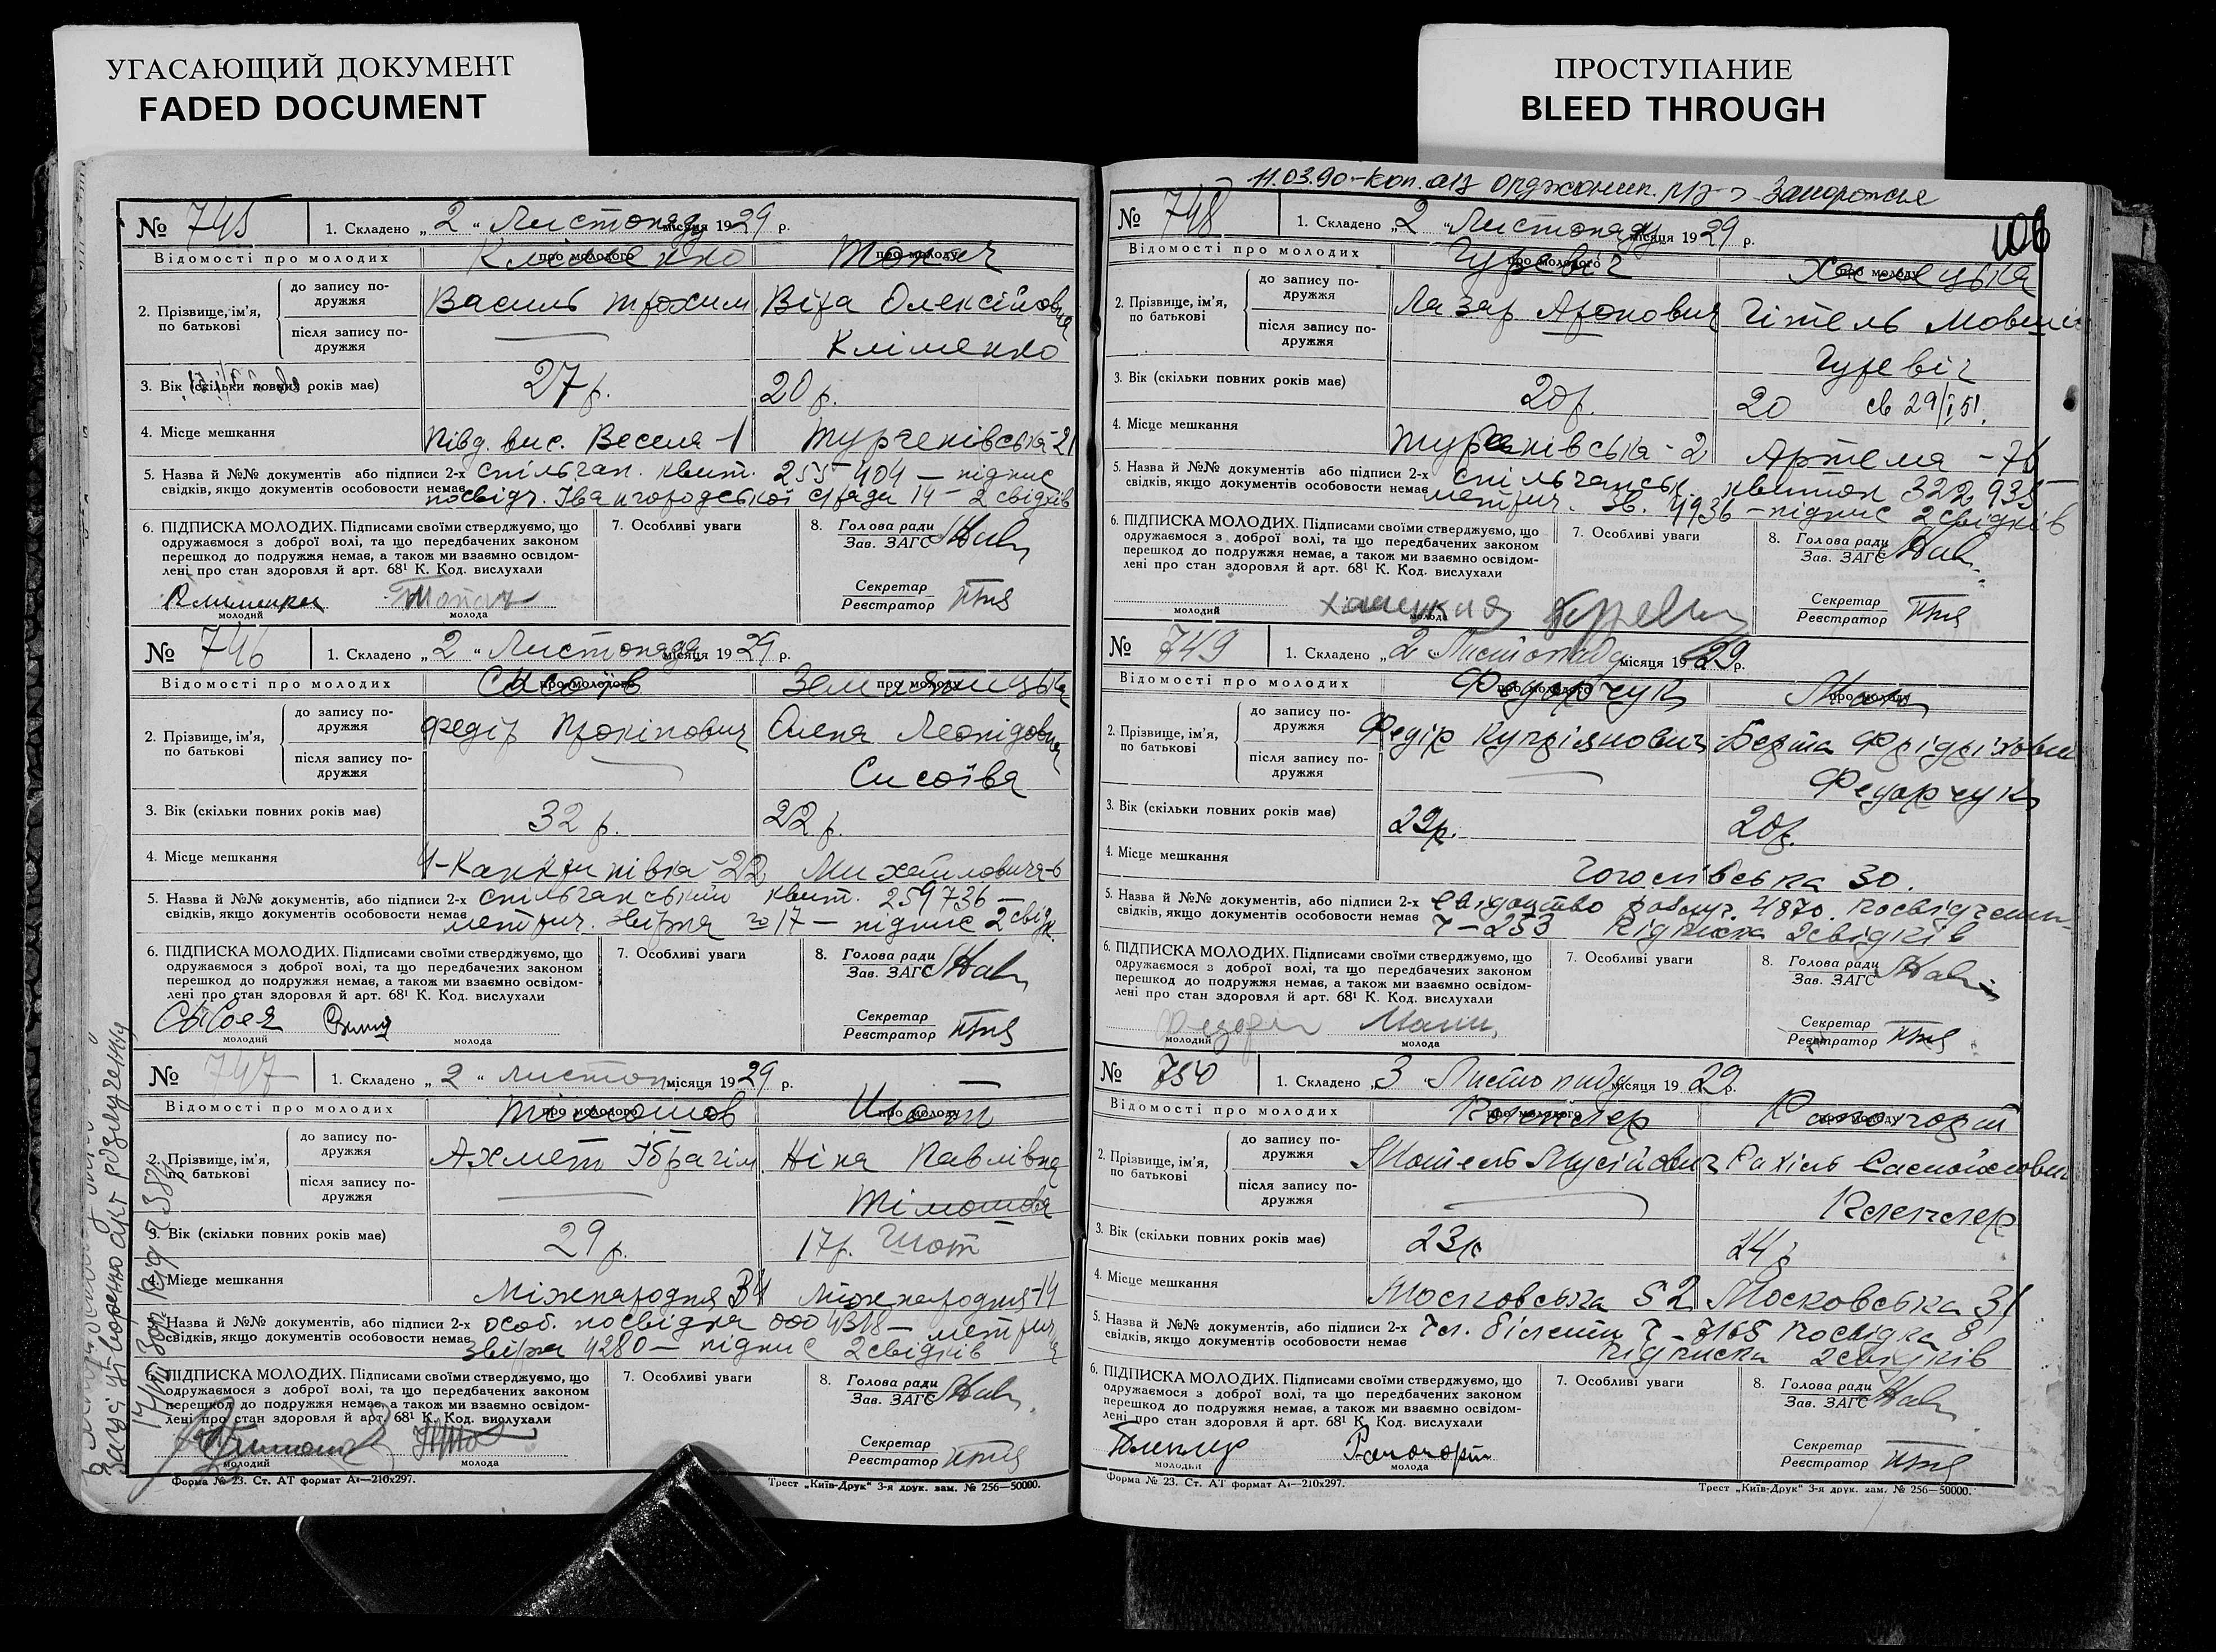 УГАСАЮЩИЙ ДОКУМЕНТ
FADED DOCUMENT
ПРОСТУПАНИЕ
BLEED THROUGH
№ 745 1. Складено „ 2 “ Листопада місяця 1929 р.
Відомості про молодих про молодого про молоду
Кліменко
2. Прізвище, ім’я, по батькові
до запису подружжя
Василь Трохим Віра Олексійовна
після запису подружжя
Кліменко
3. Вік (скільки повних років має) 27 р. 20 р.
4. Місце мешкання Півд. вис. Весела-1 Тургенівська-21
5. Назва й №№ документів або підписи 2-х спільчан. квит. 255404 — підпис
свідків, якщо документів особовости немає посвідч. Івангородської с/ради 14 — 2 свідків
6. ПІДПИСКА МОЛОДИХ. Підписами своїми стверджуємо, що
одружаємося з доброї волі, та що передбачених законом
перешкод до подружжя немає, а також ми взаємно освідом-
лені про стан здоровля й арт. 68¹ К. Код. вислухали
7. Особливі уваги
8. Голова ради
Зав. ЗАГС
Секретар
Реєстратор
молодий молода
№ 746 1. Складено „ 2 “ Листопада місяця 1929 р.
Відомості про молодих про молодого про молоду
2. Прізвище, ім’я, по батькові
до запису подружжя
Федір Прокіпович Олена Леонідовна
після запису подружжя
Сисоїва
3. Вік (скільки повних років має) 32 р. 22 р.
4. Місце мешкання Михайловича-6
5. Назва й №№ документів, або підписи 2-х спільчанський квит. 259736 —
свідків, якщо документів особовости немає метрич. 17 — підпис 2 свідк.
6. ПІДПИСКА МОЛОДИХ. Підписами своїми стверджуємо, що
одружаємося з доброї волі, та що передбачених законом
перешкод до подружжя немає, а також ми взаємно освідом-
лені про стан здоровля й арт. 68¹ К. Код. вислухали
7. Особливі уваги
8. Голова ради
Зав. ЗАГС
Секретар
Реєстратор
молодий молода
№ 747 1. Складено „ 2 “ листоп. місяця 1929 р.
Відомості про молодих про молодого про молоду
Тімошов Шот
2. Прізвище, ім’я, по батькові
до запису подружжя
Ахмет Ібрагім. Ніна Павлівна
після запису подружжя
Тімошова
3. Вік (скільки повних років має) 29 р. 17 р. Шот
4. Місце мешкання Міжнародня 34 Міжнародня-14
5. Назва й №№ документів, або підписи 2-х особ. посвідка 000 4318 — метрич
свідків, якщо документів особовости немає 4280 — підпис 2 свідків
6. ПІДПИСКА МОЛОДИХ. Підписами своїми стверджуємо, що
одружаємося з доброї волі, та що передбачених законом
перешкод до подружжя немає, а також ми взаємно освідом-
лені про стан здоровля й арт. 68¹ К. Код. вислухали
7. Особливі уваги
8. Голова ради
Зав. ЗАГС
Секретар
Реєстратор
молодий молода
Форма № 23. Ст. АТ формат А₄—210х297.
Трест „Київ-Друк“ 3-я друк. зам. № 256—50000.
11.03.90 - коп. а/з Орджоник. р/з г Запорожья
106
№ 748 1. Складено „2 “ Листопаду місяця 1929 р.
Відомості про молодих про молодого про молоду
Гуревіч
2. Прізвище, ім’я, по батькові
до запису подружжя
Лазар Аронович Гітель
після запису подружжя
Гуревіч
3. Вік (скільки повних років має) 20 р. 20 св 29/I 51.
4. Місце мешкання Тургенівська-2 Артема - 76
5. Назва й №№ документів або підписи 2-х спільчанськ. квиток 322935 —
свідків, якщо документів особовости немає метрич. зв. 4936 — підпис 2 свідків
6. ПІДПИСКА МОЛОДИХ. Підписами своїми стверджуємо, що
одружаємося з доброї волі, та що передбачених законом
перешкод до подружжя немає, а також ми взаємно освідом-
лені про стан здоровля й арт. 68¹ К. Код. вислухали
7. Особливі уваги
8. Голова ради
Зав. ЗАГС
Секретар
Реєстратор
молодий молода
№ 749 1. Складено „2 Листопада місяця 1929 р.
Відомості про молодих про молодого про молоду
Федорчук
2. Прізвище, ім’я, по батькові
до запису подружжя
Федір Купріянович Берта Фрідріховна
після запису подружжя
Федорчук
3. Вік (скільки повних років має) 22р. 20р.
4. Місце мешкання Гоголівська 30.
5. Назва й №№ документів, або підписи 2-х свідоцтво 4870. Посвідчення
свідків, якщо документів особовости немає 7-253 Підписка 2 свідків
6. ПІДПИСКА МОЛОДИХ. Підписами своїми стверджуємо, що
одружаємося з доброї волі, та що передбачених законом
перешкод до подружжя немає, а також ми взаємно освідом-
лені про стан здоровля й арт. 68¹ К. Код. вислухали
7. Особливі уваги
8. Голова ради
Зав. ЗАГС
Секретар
Реєстратор
молодий молода
№ 750 1. Складено „3 Листопаду місяця 1929 р.
Відомості про молодих про молодого про молоду
2. Прізвище, ім’я, по батькові
до запису подружжя
Мотель Мусійович Рахіль
після запису подружжя
3. Вік (скільки повних років має) 23р 24р
4. Місце мешкання Московська 52 Московська 31
5. Назва й №№ документів, або підписи 2-х чл. білети 7-7165 Посвідка 8
свідків, якщо документів особовости немає Підписка 2 свідків
6. ПІДПИСКА МОЛОДИХ. Підписами своїми стверджуємо, що
одружаємося з доброї волі, та що передбачених законом
перешкод до подружжя немає, а також ми взаємно освідом-
лені про стан здоровля й арт. 68¹ К. Код. вислухали
7. Особливі уваги
8. Голова ради
Зав. ЗАГС
Секретар
Реєстратор
молодий молода
Форма № 23. Ст. АТ формат А₄—210х297.
Трест „Київ-Друк“ 3-я друк. зам. № 256—50000.